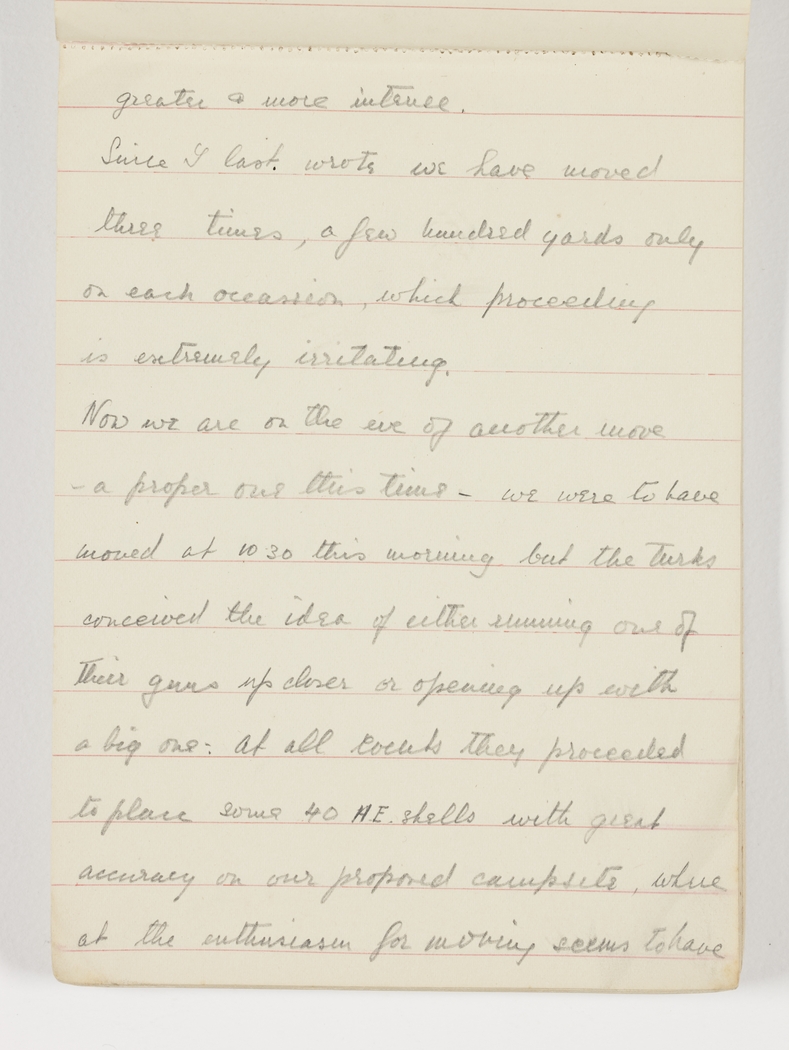 greater & more intense.
Since I last. wrote we have moved
three times, a few hundred yards only
on each occassion, which proceeding
is extremely irritating.
Now we are on the eve of another move
- a proper one this time - we were to have
moved at 10 30 this morning but the Turks
conceived the idea of either running one of
their guns up closer or opening up with
a big one: at all events they proceeded
to place some 40 H.E. shells with great
accuracy on our proposed campsite, where
at the enthusiasm for moving seems to have